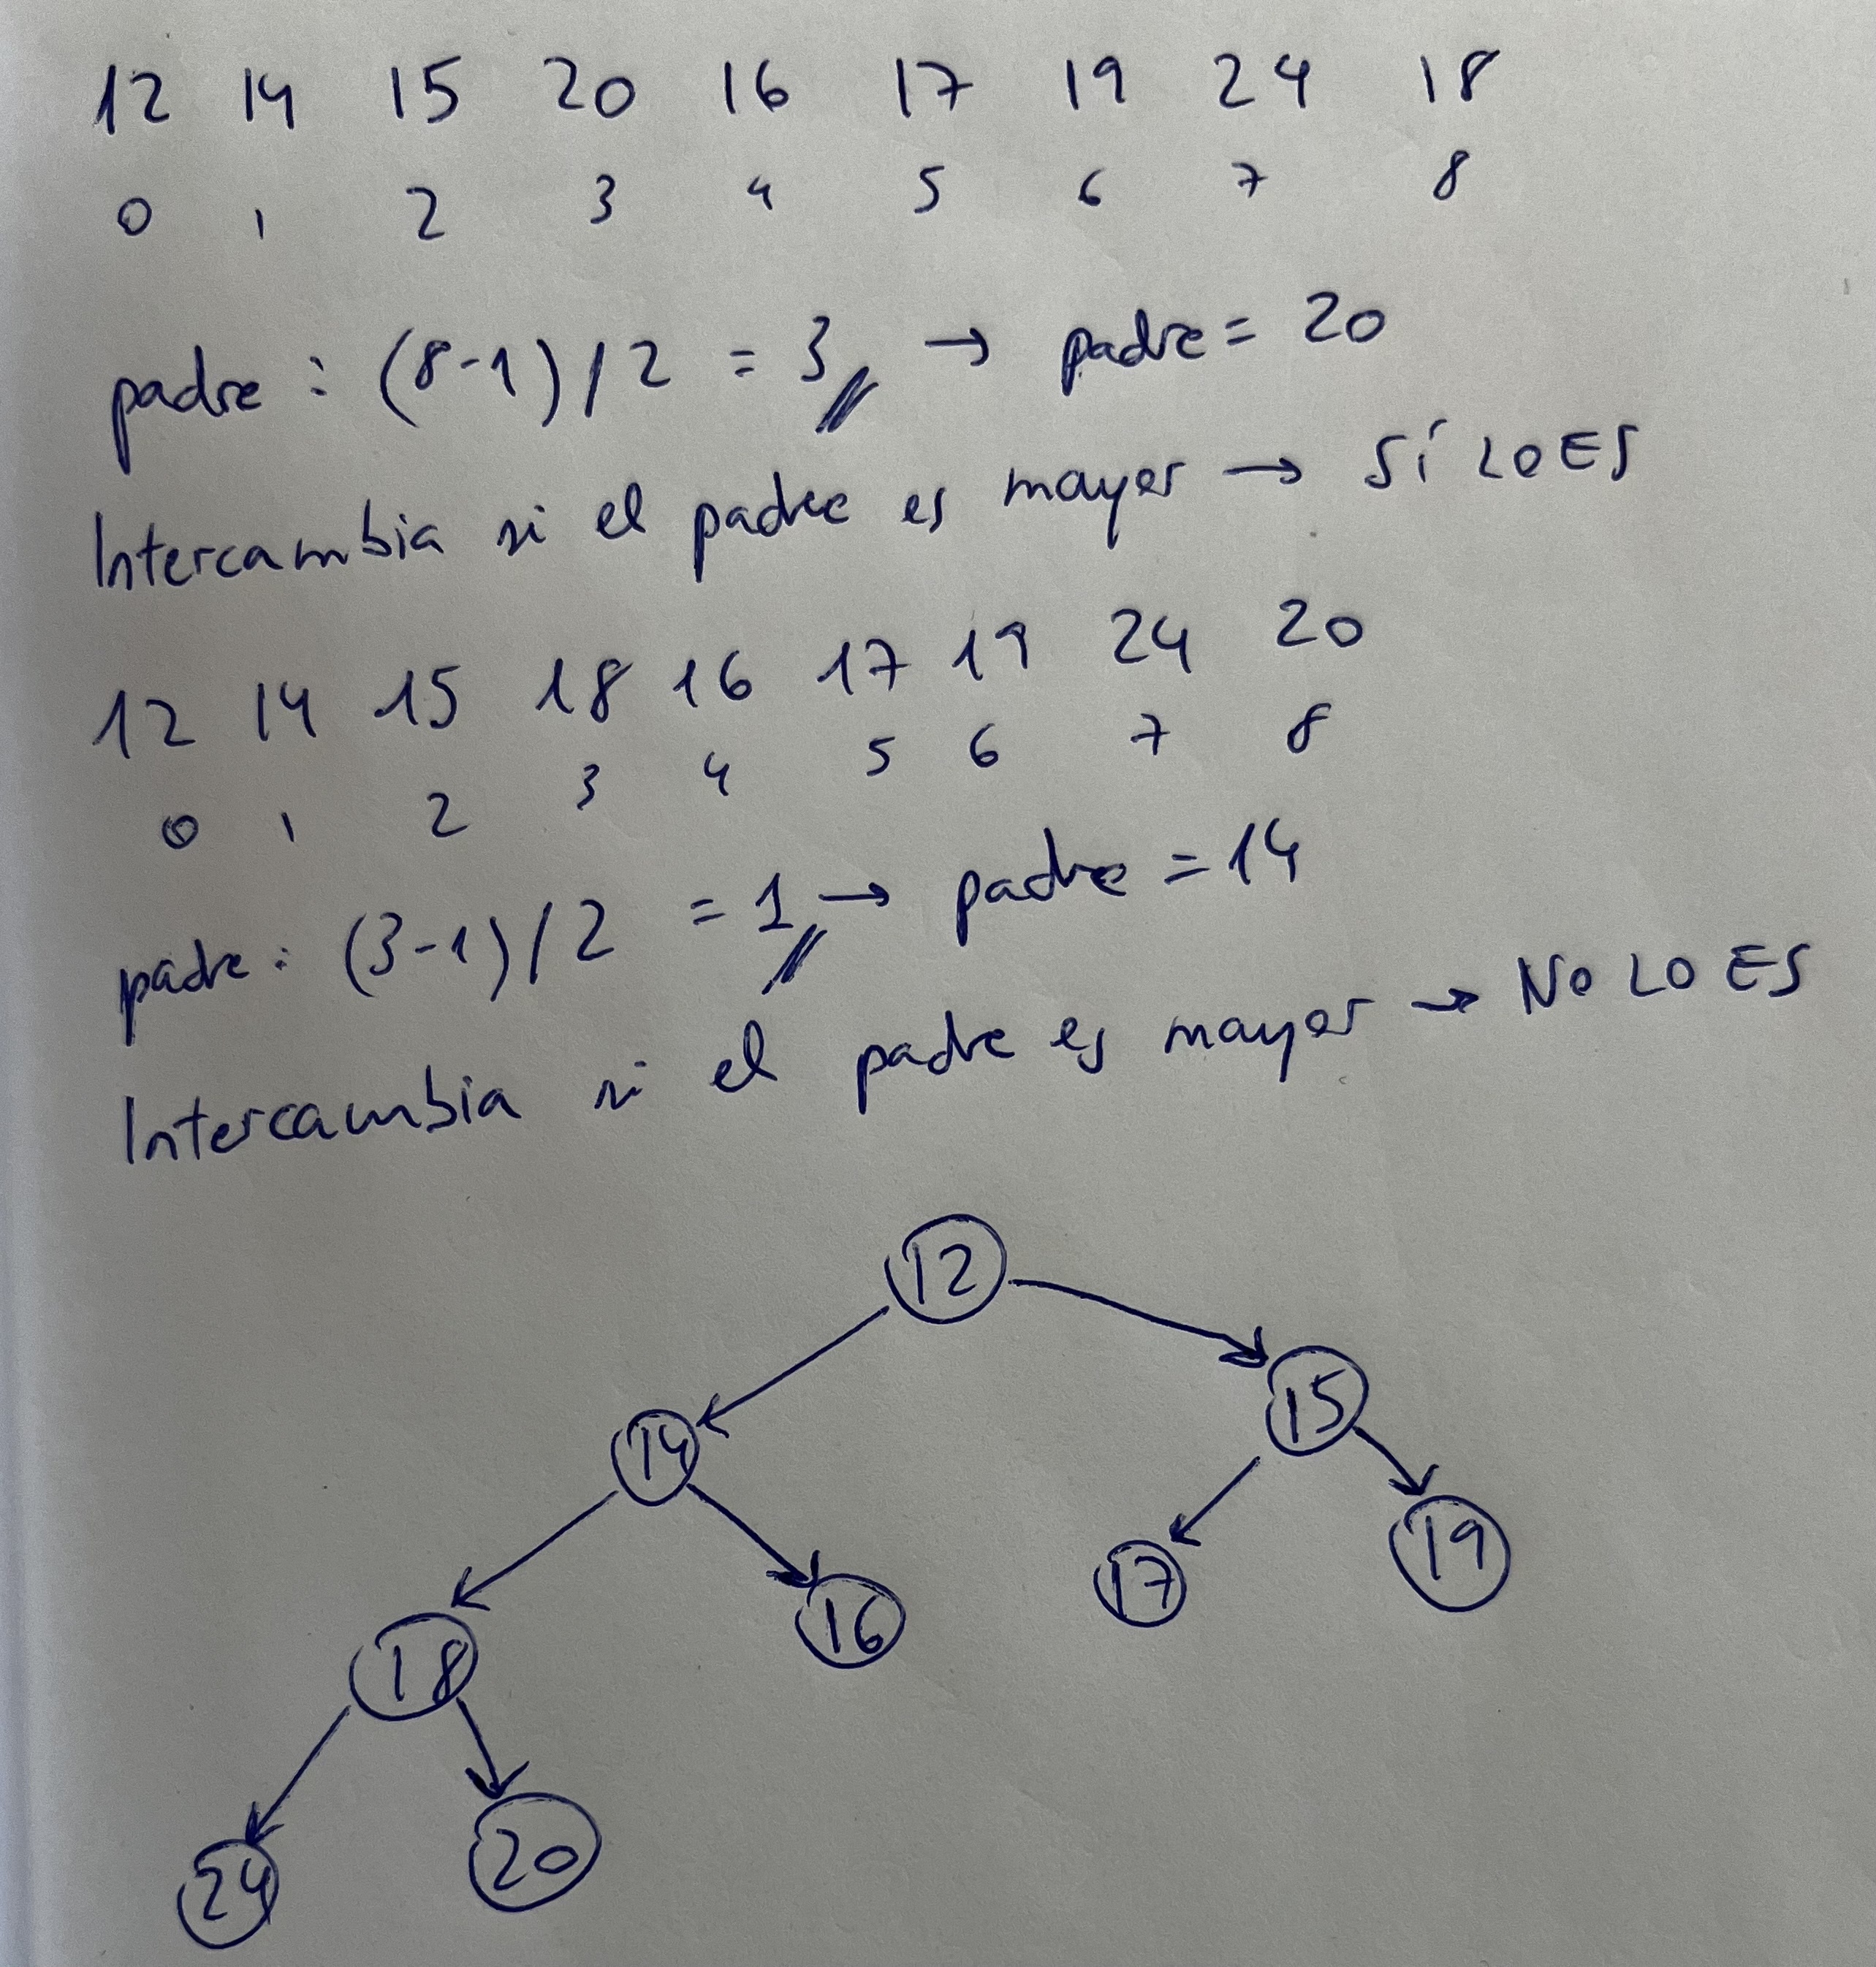 12 14 15 20 16 17 19 24 18
0 1 2 3 4 5 6 7 8
padre : (8-1)/2 = 3 → padre = 20
Intercambia si el padre es mayor → SÍ LO ES
12 14 15 18 16 17 19 24 20
0 1 2 3 4 5 6 7 8
padre : (3-1)/2 = 1 → padre = 14
Intercambia si el padre es mayor → NO LO ES
12
14 15
18 16 17 19
24 20